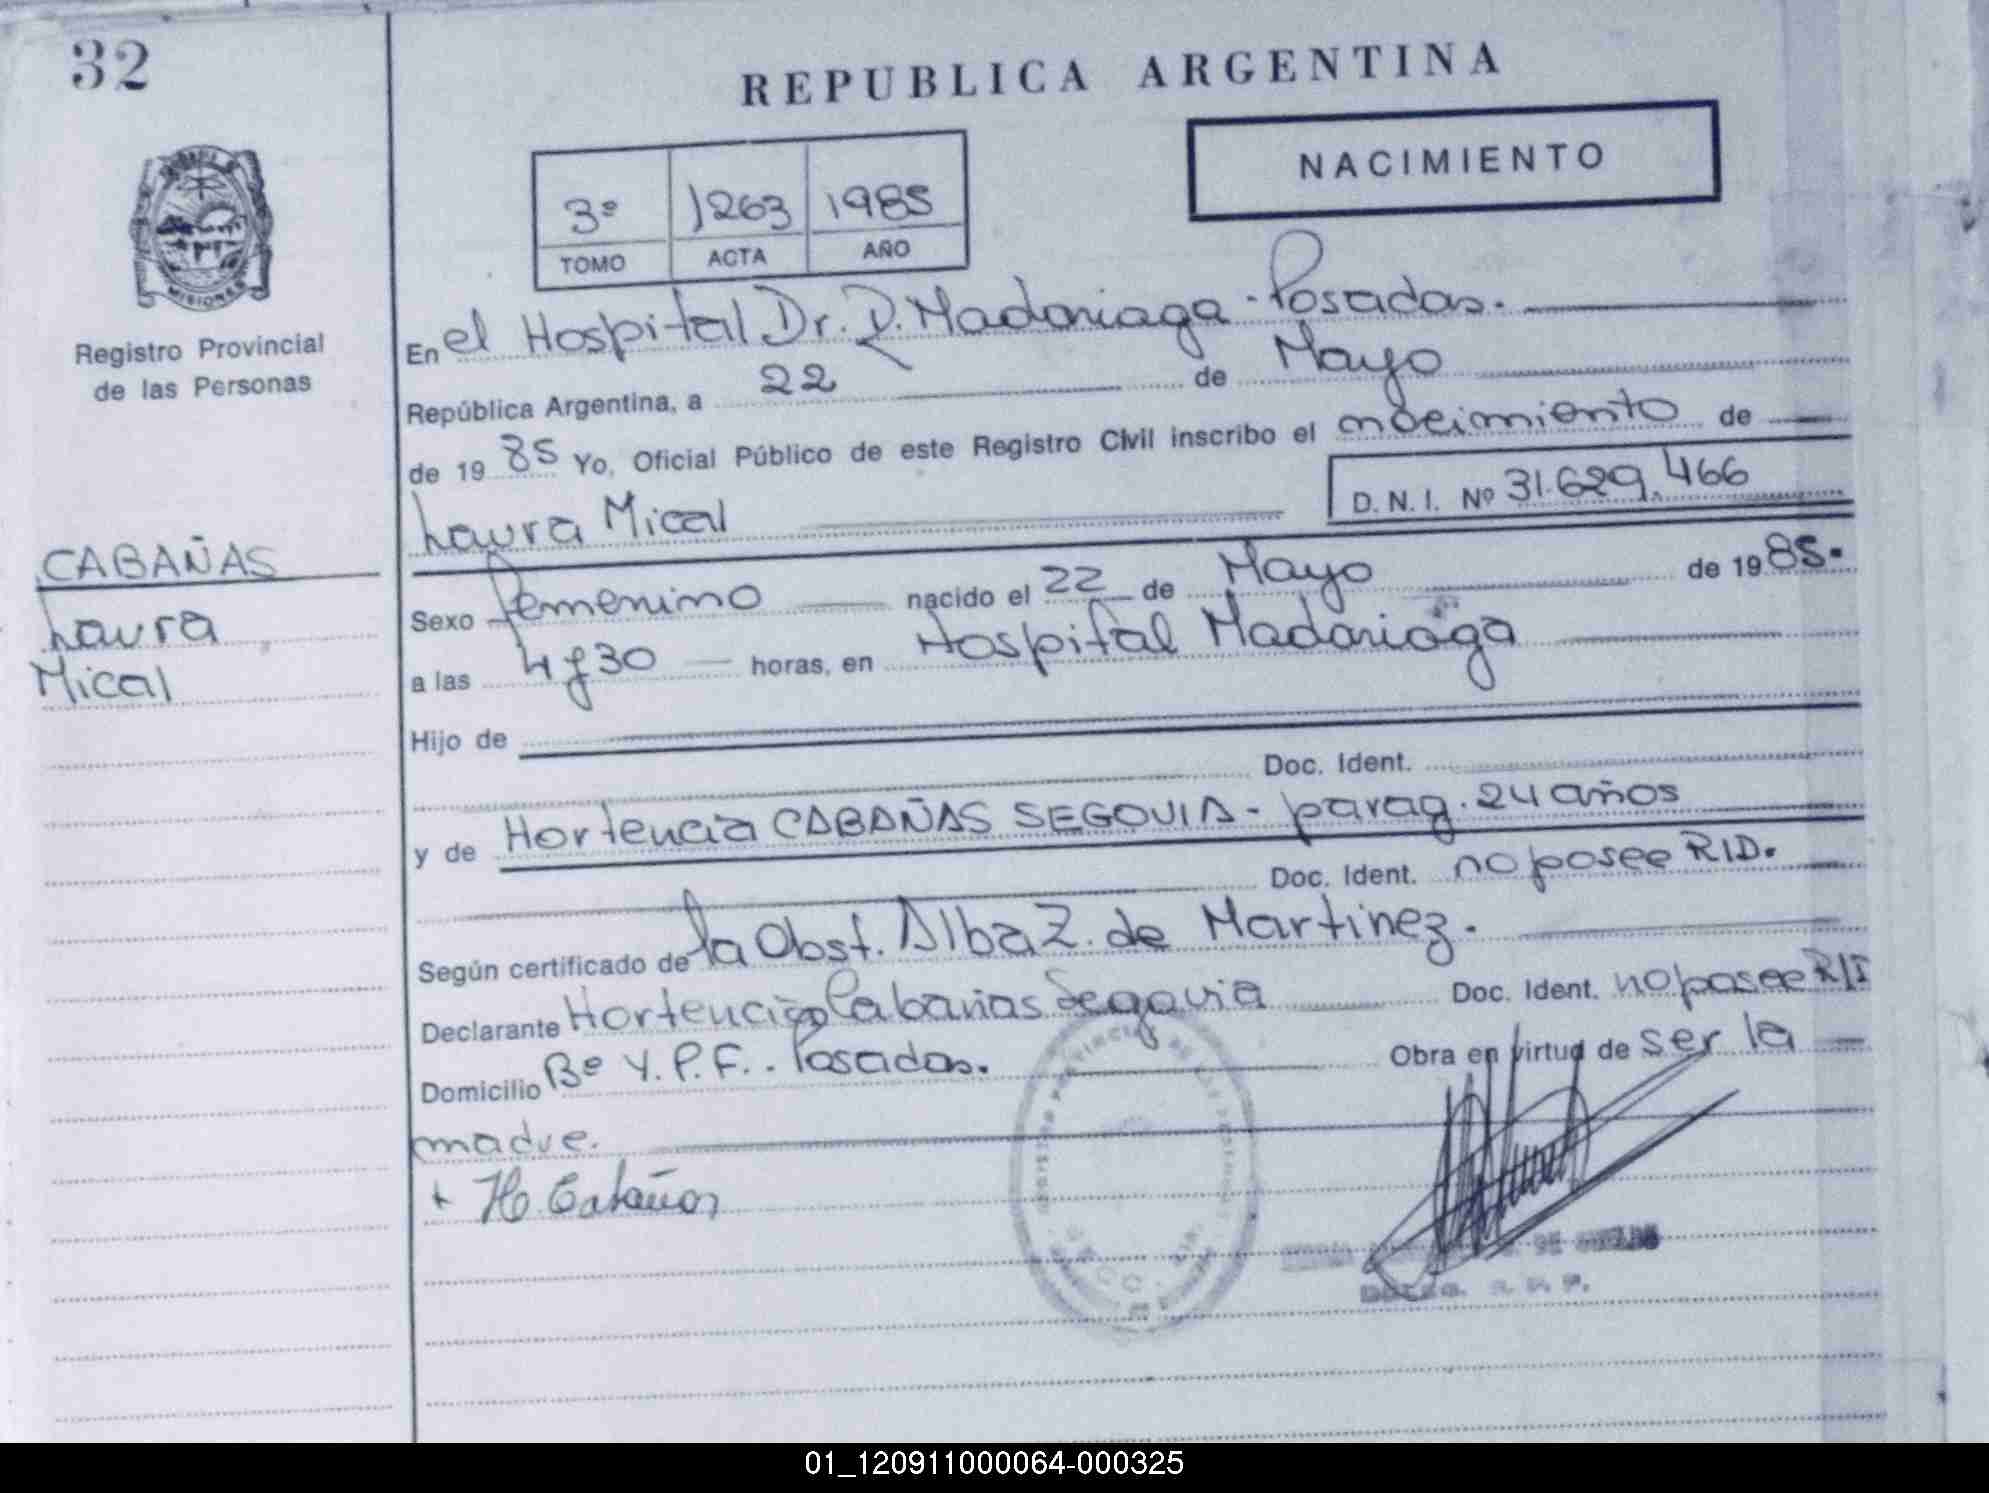 32
REPUBLICA ARGENTINA
NACIMIENTO
3º 1263 1985
TOMO ACTA AÑO
MISIONES
Registro Provincial
de las Personas
CABAÑAS
Laura
Mical
En el Hospital Dr. R. Madariaga - Posadas.
República Argentina, a 22 de Mayo
de 1985 Yo, Oficial Público de este Registro Civil inscribo el nacimiento de
Laura Mical D. N. I. Nº 31.629.466
Sexo femenino nacido el 22 de Mayo de 1985.
a las 4 y 30 horas, en Hospital Madariaga
Hijo de
Doc. Ident.
y de Hortencia CABAÑAS SEGOVIA - parag. 24 años
Doc. Ident. no posee RID.
Según certificado de la Obst. Alba Z. de Martinez.
Declarante Hortencia Cabañas Segovia Doc. Ident. no posee RID
Domicilio Bº Y.P.F. - Posadas. Obra en virtud de ser la
madre.
+ H. Cabañas
01_120911000064-000325